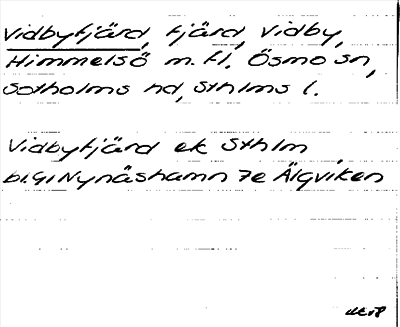 Vidbyfjärd, fjärd, Vidby,
Himmelsö m.fl. Ösmo sn,
Sotholms hd, Sthlms l.
Vidbyfjärd ek Sthlm
bl.91 Nynäshamn 7e Älgviken